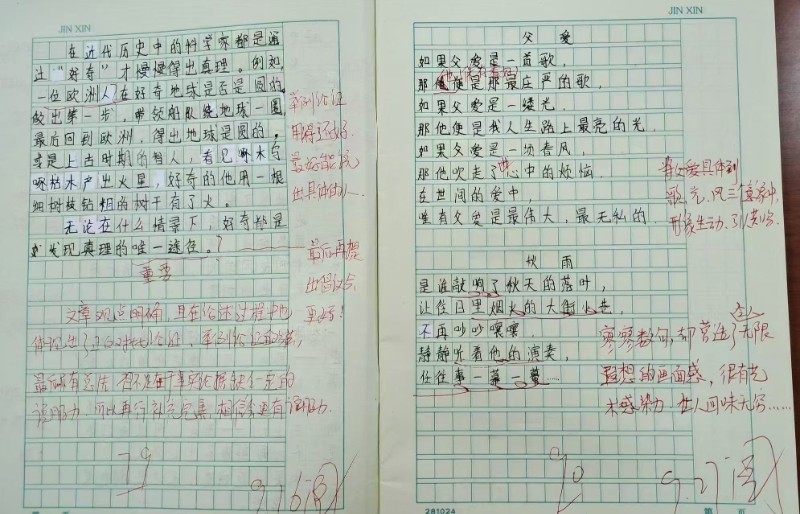 JIN XIN
在近代历史中的科学家都是通
过"好奇"才慢慢得出真理。例如,
一位欧洲人在好奇地球是否是圆的,
做出第一步,带领船队绕地球一圈
最后回到欧洲,得出地球是圆的。
或是上古时期的智人,看见啄木鸟
啄枯木产出火星,好奇的他用一根
细树枝钻粗的树干有了火。
无论在什么情景下,好奇都是
发现真理的唯一途径。?
重要
举例论证
用得了还好
最好能说
出具体的人
最后再提
出倡议会
更好!
文章观点明确,且在论述过程中也
最后有总结
说服力
79
9.16阅
JIN XIN
父爱
如果父爱是一首歌,
那他便是那最庄严的歌,
如果父爱是一缕光,
那他便是我人生路上最亮的光,
如果父爱是一顷春风,
那他吹走了心中的烦恼,
在世间的爱中,
唯有父爱是最伟大,最无私的.
将父爱具体到
歌、光、风三个意象中,
形象生动、引人
秋雨
是谁敲响了秋天的落叶,
让往日里烟火的大街小巷,
不再吵吵嚷嚷.
静静听着他的演奏,
往往一幕一幕……
寥寥数句,却营造了无限
遐想的画面感,很有艺
术感染力,让人回味无穷……
90
9.27阅
281024
第 页